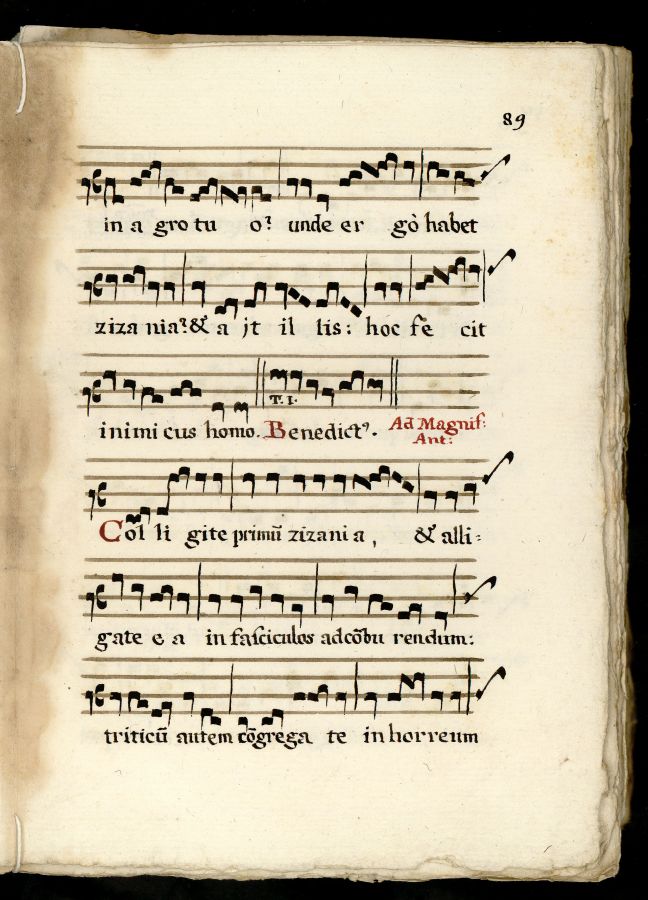 89
in a gro tu o? unde er gò habet
ziza nia? & a jt il lis: hoc fē cit
T. I.
inimi cus homo. Benedictꝰ. Ad Magnif:
Ant:
Col li gite primū zizani a, & alli=
gate e a in fasciculos adcōbu rendum:
triticū autem cōgrega te in horreum